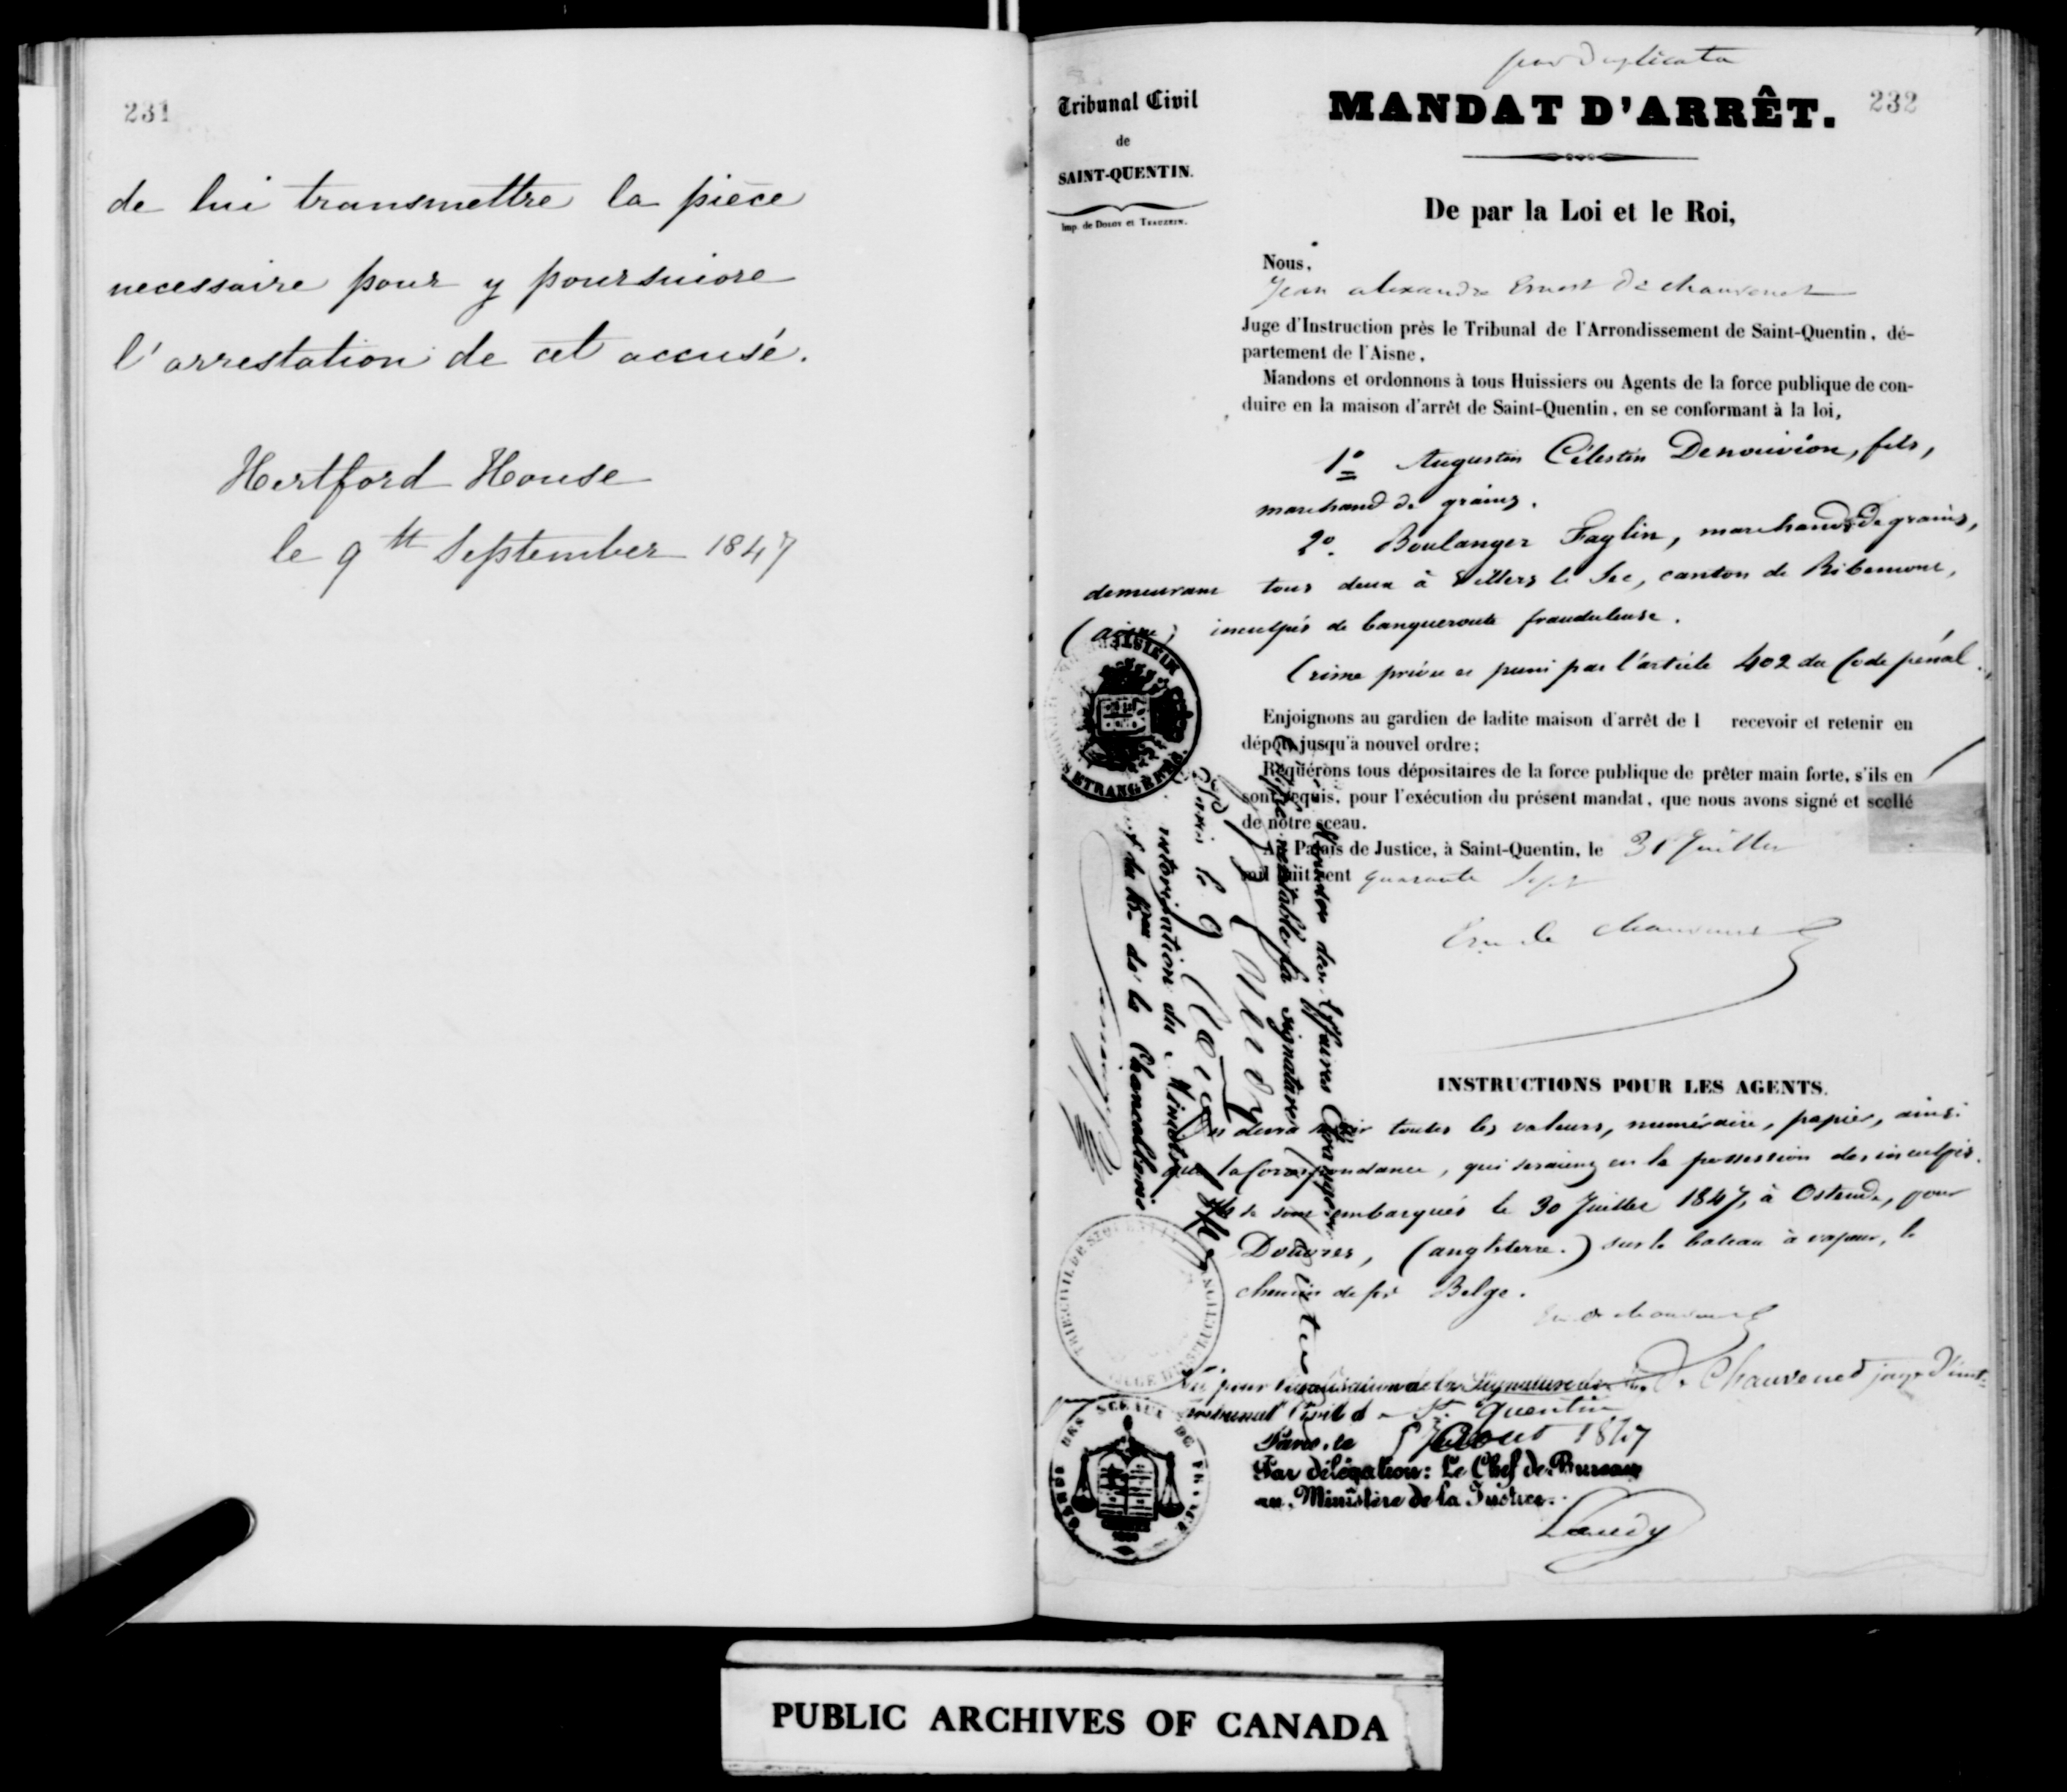 231
de lui transmettre la pièce
necessaire pour y poursuivre
l'arrestation de cet accusé.
Hertford House
le 9th September 1847
par Duplicata
Tribunal Civil
de
SAINT-QUENTIN.
MANDAT D'ARRÊT.
232
De par la Loi et le Roi,
Nous,
Jean alexandre Ernest De Chauvenet
Juge d'Instruction près le Tribunal de l'Arrondissement de Saint-Quentin, dé-
partement de l'Aisne,
Mandons et ordonnons à tous Huissiers ou Agents de la force publique de con-
duire en la maison d'arrêt de Saint-Quentin, en se conformant à la loi,
1° Augustin Célestin Denouvion, fils,
marchand de grains.
2°. Boulanger Faglin, marchand de grains,
demeurant tous deux à Villers le Sec, canton de Ribemont,
(aisne) inculpés de banqueroute frauduleuse.
Crime prévu et puni par l'article 402 du Code pénal.
Enjoignons au gardien de ladite maison d'arrêt de l recevoir et retenir en
dépôt jusqu'à nouvel ordre;
Requérons tous dépositaires de la force publique de prêter main forte, s'ils en
sont requis, pour l'exécution du présent mandat, que nous avons signé et scellé
de notre sceau.
Au Palais de Justice, à Saint-Quentin, le 31 Juillet
mil huit cent quarante Sept
de Chauvenet
INSTRUCTIONS POUR LES AGENTS.
On devra saisir toutes les valeurs, numéraire, papier, ainsi
que la Correspondance, qui seraient en la possession des inculpés.
Ils se sont embarqués le 30 Juillet 1847, à Ostende, pour
Douvres, (angleterre.) sur le bateau à vapeur, le
chemin de fer Belge.
de Chauvenet
Vu pour légalisation de la Signature de M. De Chauvenet juge d'inst
Tribunal Civil d St. Quentin
Paris, le août 1847
Par délégation: Le Chef de Bureau
au Ministère de la Justice.
des Affaires Etrangères
véritable la signature
Paris le 9 Août
autorisation du Ministre
de la Chancellerie
ETRANGERES
DES SCEAUX DE FRANCE
PUBLIC ARCHIVES OF CANADA